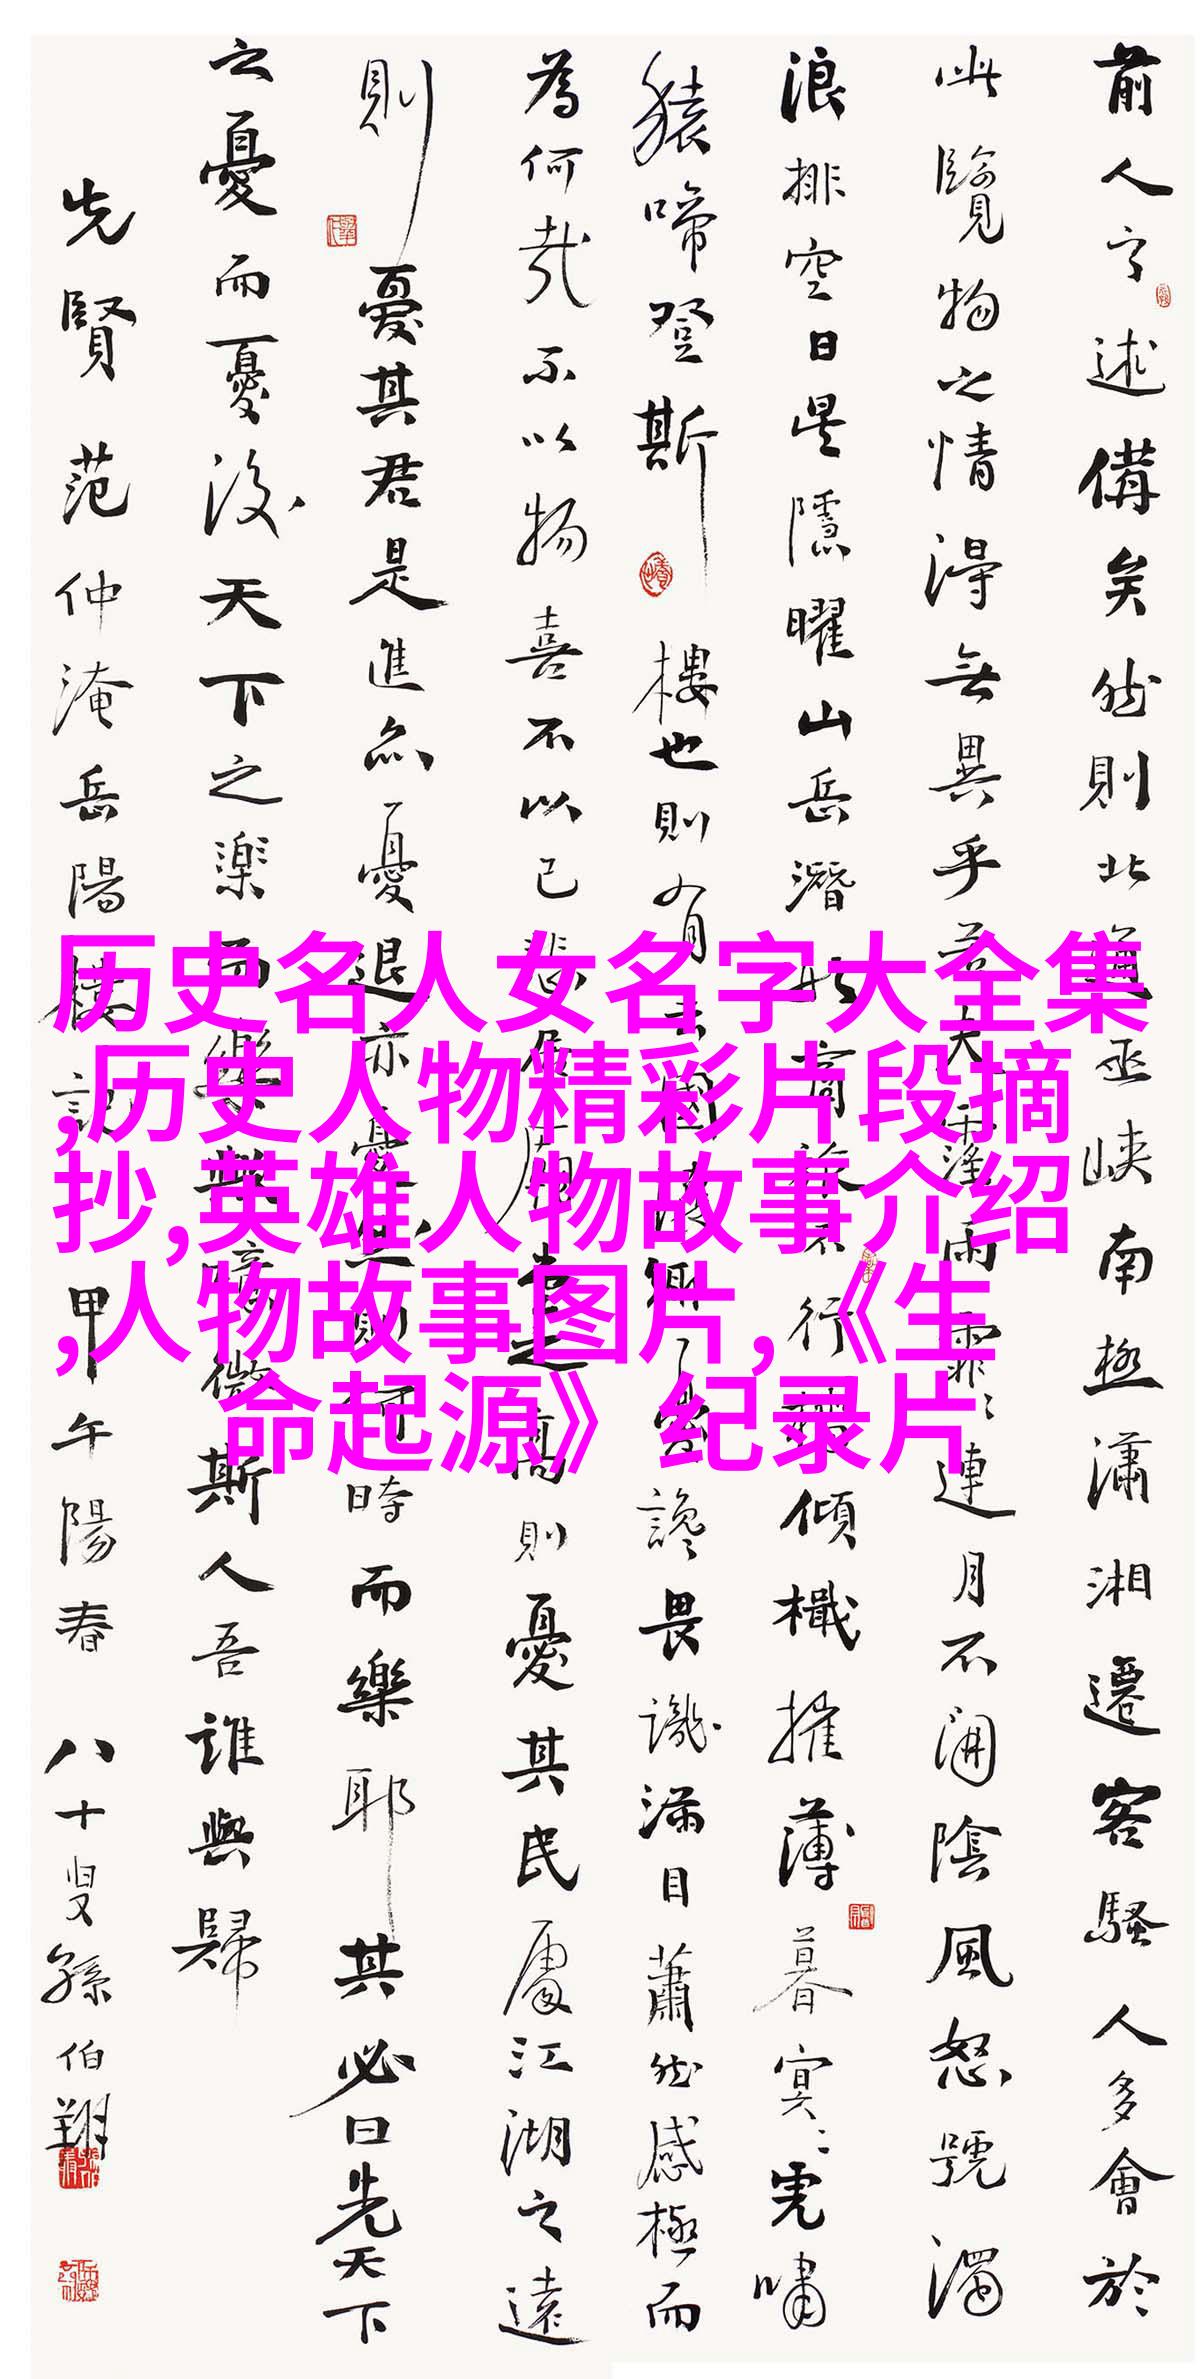 前人之述備矣然則北通巫峽南極瀟湘遷客騷人多會於
此覽物之情得無異乎若夫霪雨霏々連月不開陰風怒號濁
浪排空日星隱曜山岳潛形商旅不行檣傾檝摧薄暮冥々虎嘯
猿啼登斯樓也則有去國懷鄉憂讒畏譏滿目蕭然感極而
為何哉不以物喜不以己悲居廟堂之高則憂其民處江湖之遠
則憂其君是進亦憂退亦憂然則何時而樂耶其必曰先天下
之憂而憂後天下之樂而樂歟噫微斯人吾誰與歸
先賢范仲淹岳陽樓記 甲午陽春 八十叟孫伯翔
历史名人女名字大全集
,历史人物精彩片段摘
抄,英雄人物故事介绍
,人物故事图片,《生
命起源》纪录片